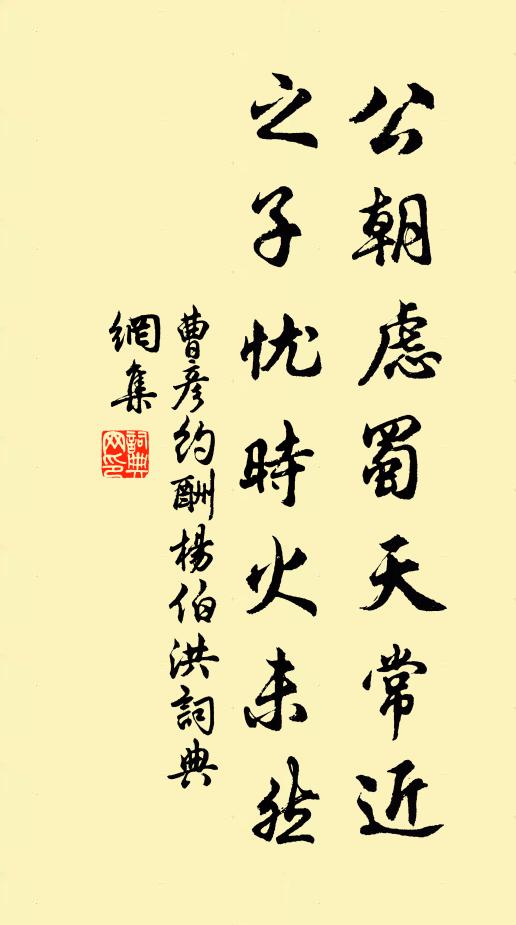 公朝慮蜀天常近
之子忧時火未然
曹彥约酬楊伯洪詞典
網集
詞典网印